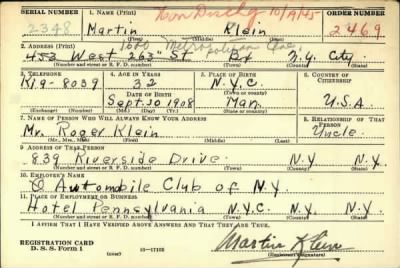 SERIAL NUMBER 1. NAME (Print) Hon Dischg 10/19/45 ORDER NUMBER
2348 Martin Klein 2469
(First) (Middle) (Last)
2. ADDRESS (Print) 1660 Metropolitan Ave.
453 West 263" St. Bx N.Y. City
(Number and street or R. F. D. number) (Town) (County) (State)
3. TELEPHONE 4. AGE IN YEARS 5. PLACE OF BIRTH 6. COUNTRY OF CITIZENSHIP
Ki.9-8039 32 N.Y.C.
DATE OF BIRTH (Town or county)
Sept. 30 1908 Man. U.S.A.
(Exchange) (Number) (Mo.) (Day) (Yr.) (State or country)
7. NAME OF PERSON WHO WILL ALWAYS KNOW YOUR ADDRESS 8. RELATIONSHIP OF THAT PERSON
Mr. Roger Klein Uncle.
(Mr., Mrs., Miss) (First) (Middle) (Last)
9. ADDRESS OF THAT PERSON
839 Riverside Drive. N.Y N.Y.
(Number and street or R. F. D. number) (Town) (County) (State)
10. EMPLOYER'S NAME
Automobile Club of N.Y.
11. PLACE OF EMPLOYMENT OR BUSINESS
Hotel Pennsylvania N.Y.C. N.Y. N.Y.
(Number and street or R. F. D. number) (Town) (County) (State)
I AFFIRM THAT I HAVE VERIFIED ABOVE ANSWERS AND THAT THEY ARE TRUE.
REGISTRATION CARD
D. S. S. Form 1 (over) 16—17105 Martin Klein
(Registrant's signature)